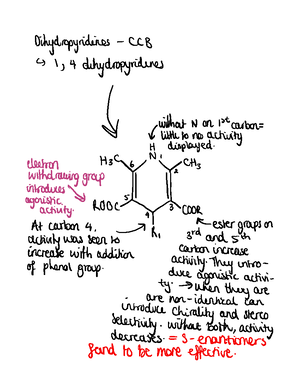 Dihydropyridines - CCB
↳ 1, 4 dihydropyridines
without N on 1st carbon =
little to no activity
displayed.
H
H3C N 1 CH3
6 2
electron
withdrawing group
introduces
agonistic
activity.
ROOC 5 3 COOR
4
R1
At carbon 4,
activity was seen to
increase with addition
of phenol group.
ester groups on
3rd and 5th
carbon increase
activity. They intro-
duce agonistic activi-
ty. → when they are
are non-identical can
introduce Chirality and stereo
selectivity. without both, activity
decreases. = S-enantiomers
fand to be more effective.